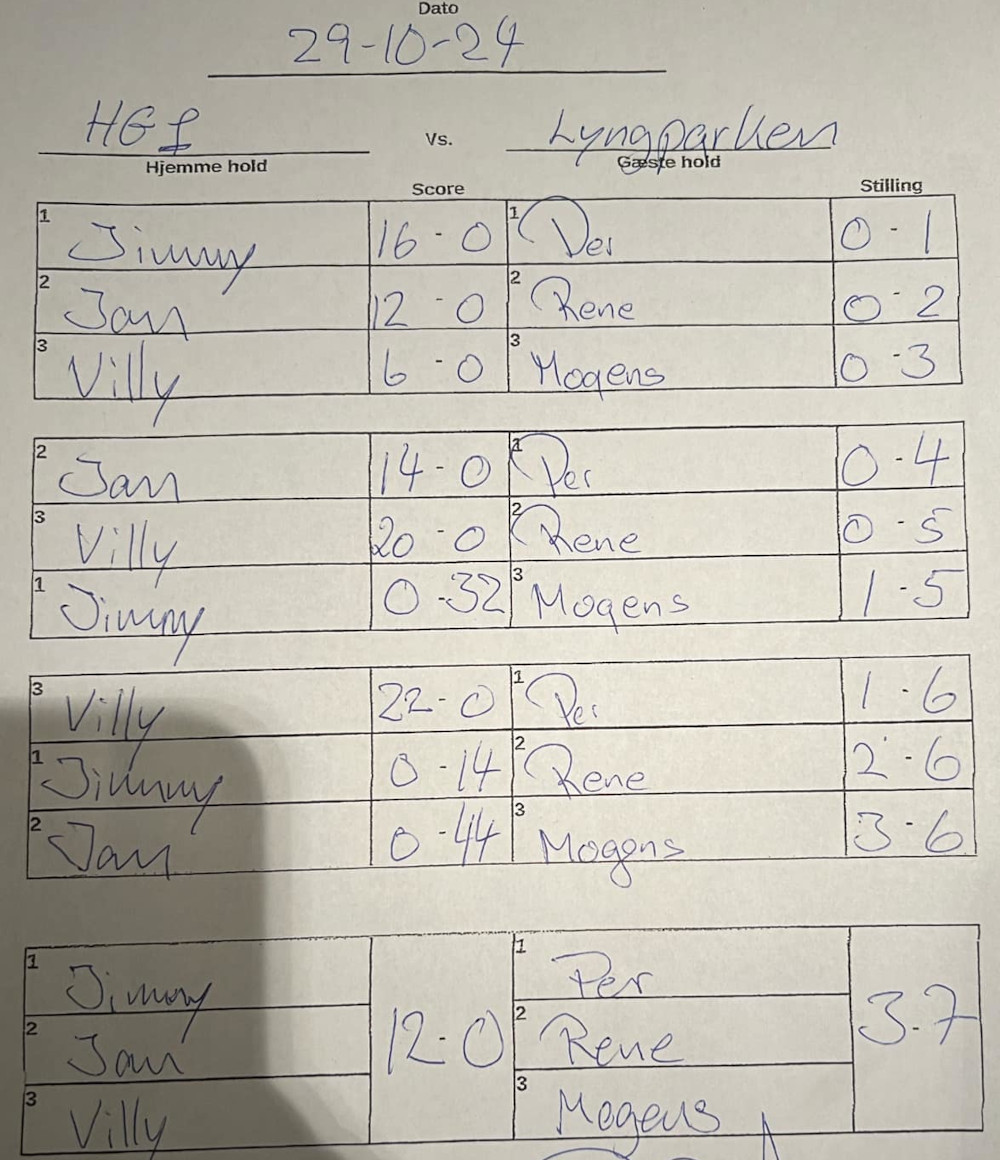 Dato
29-10-24
HG1 Vs. Lyngparken
Hjemme hold Gæste hold
Score Stilling
1 Jimmy 16-0 1 Per 0-1
2 Jan 12-0 2 Rene 0-2
3 Villy 6-0 3 Mogens 0-3
2 Jan 14-0 1 Per 0-4
3 Villy 20-0 2 Rene 0-5
1 Jimmy 0-32 3 Mogens 1-5
3 Villy 22-0 1 Per 1-6
1 Jimmy 0-14 2 Rene 2-6
2 Jan 0-44 3 Mogens 3-6
1 Jimmy 1 Per
2 Jan 12-0 2 Rene 3-7
3 Villy 3 Mogens